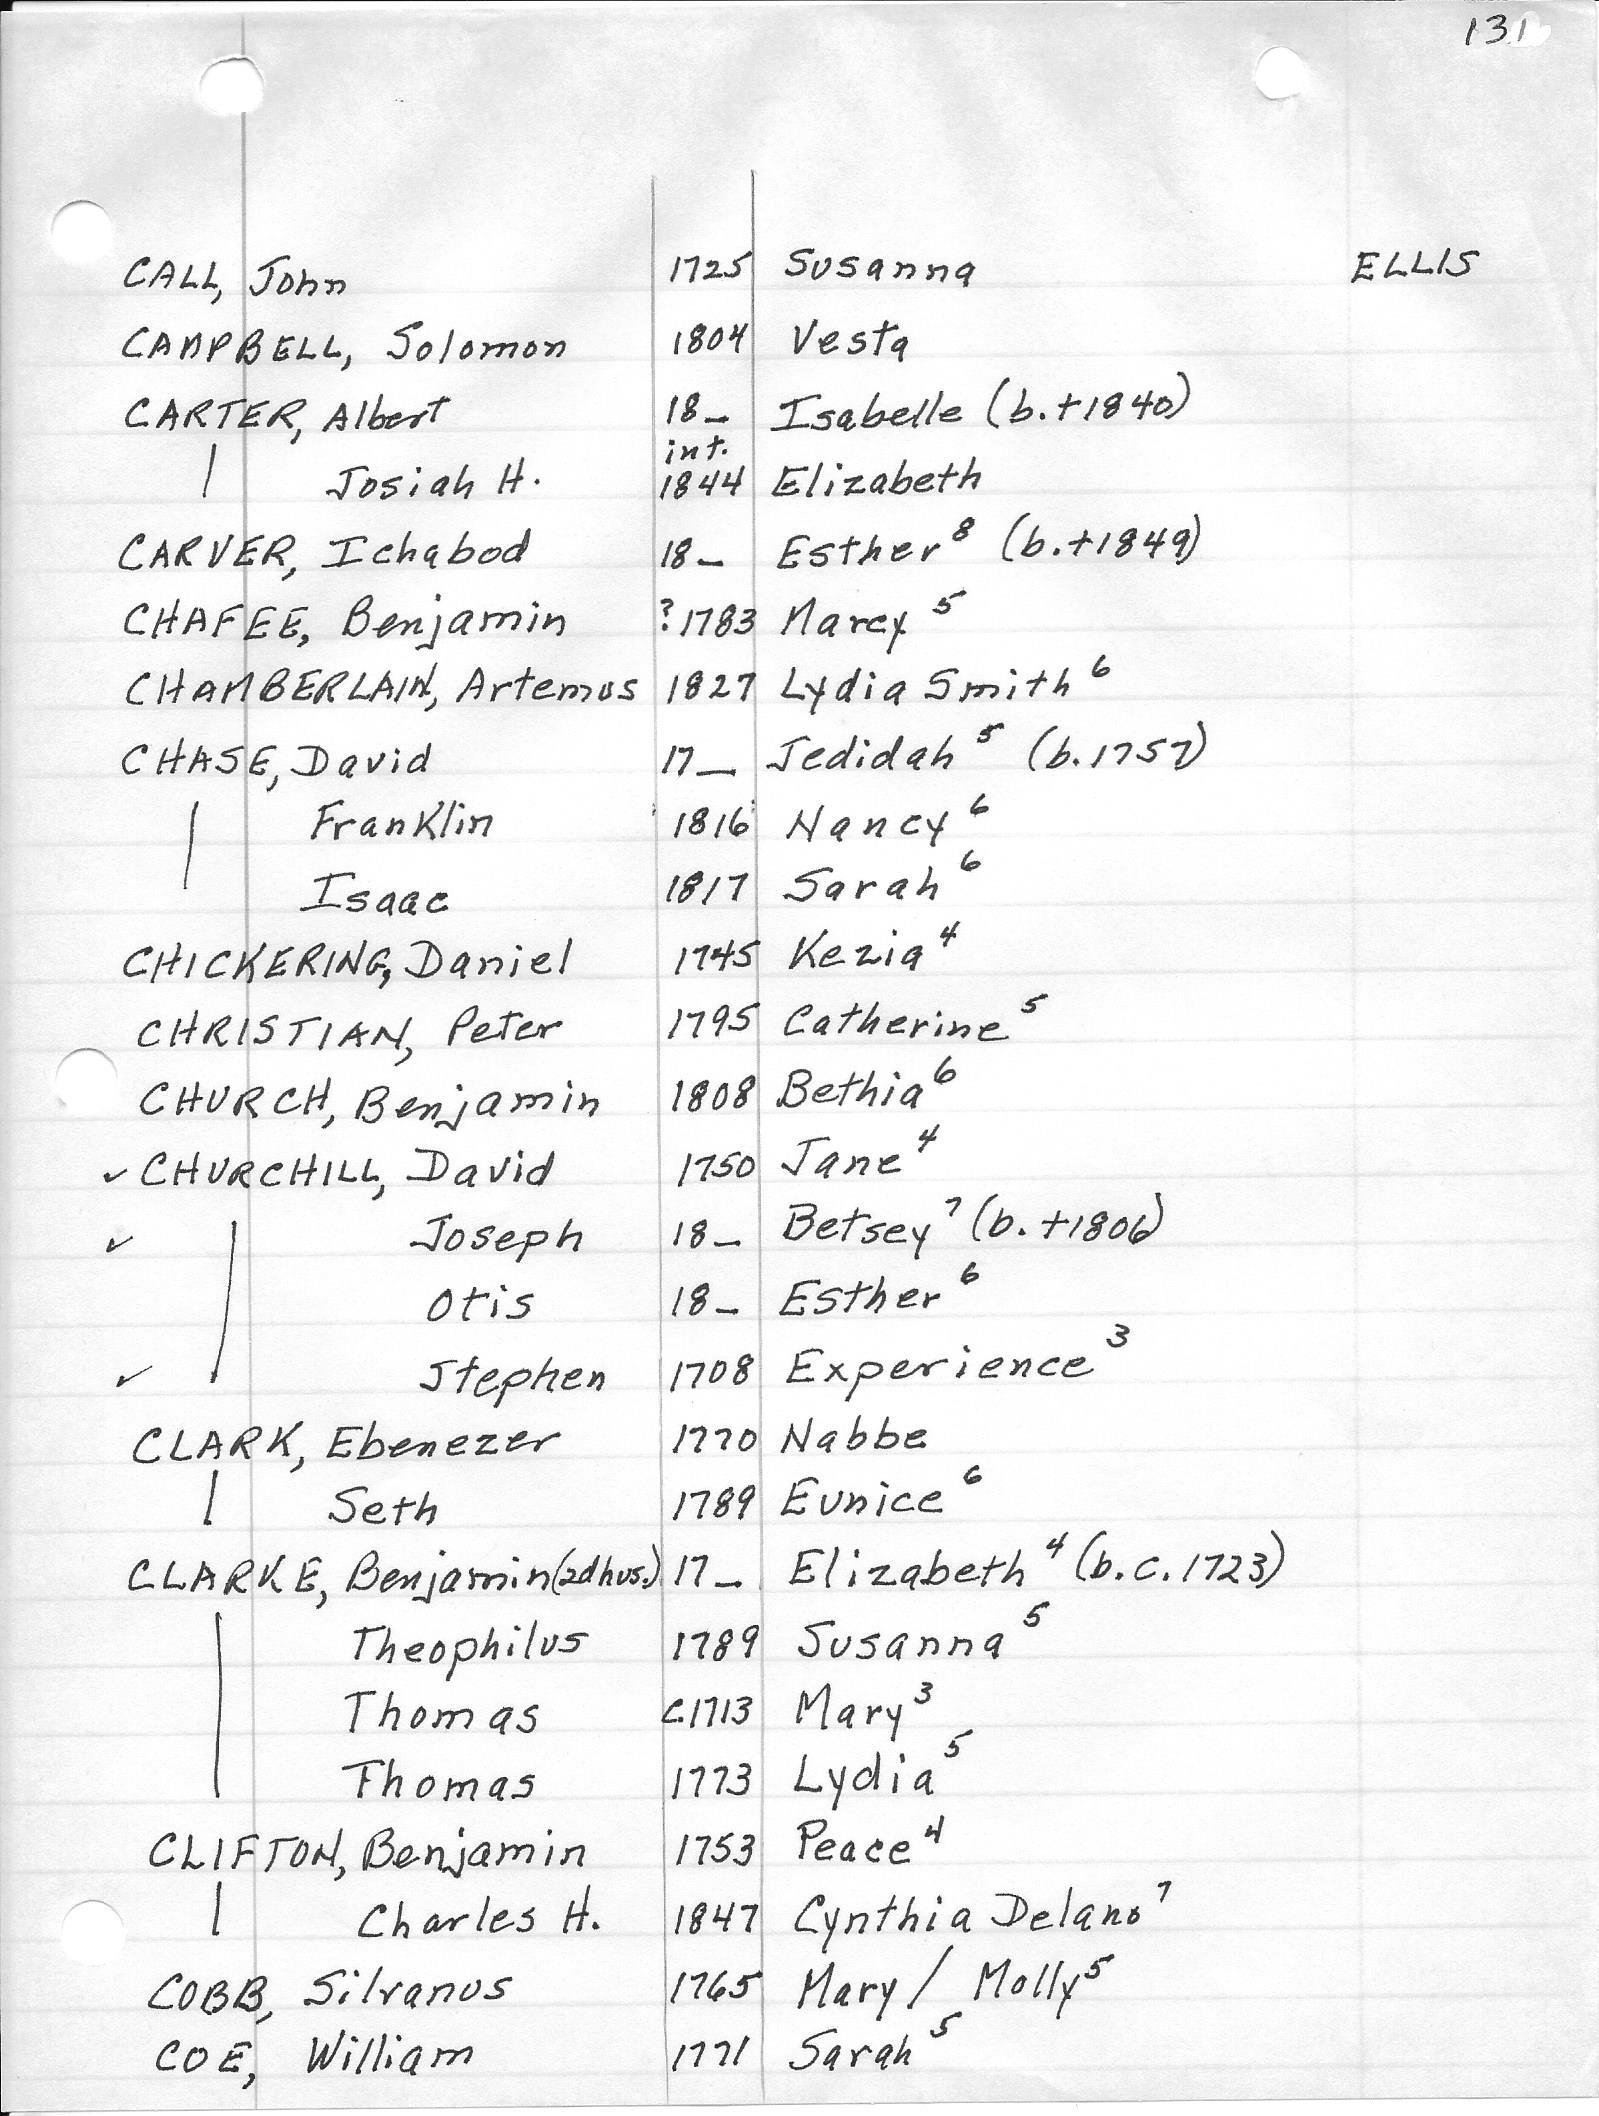 131
CALL, John 1725 Susanna ELLIS
CAMPBELL, Solomon 1804 Vesta
CARTER, Albert 18_ Isabelle (b.+1840)
int.
Josiah H. 1844 Elizabeth
CARVER, Ichabod 18_ Esther⁸ (b.+1849)
CHAFEE, Benjamin ?1783 Marcy⁵
CHAMBERLAIN, Artemus 1827 Lydia Smith⁶
CHASE, David 17_ Jedidah⁵ (b.1757)
Franklin 1816 Nancy⁶
Isaac 1817 Sarah⁶
CHICKERING, Daniel 1745 Kezia⁴
CHRISTIAN, Peter 1795 Catherine⁵
CHURCH, Benjamin 1808 Bethia⁶
✓ CHURCHILL, David 1750 Jane⁴
✓ Joseph 18_ Betsey⁷ (b.+1806)
Otis 18_ Esther⁶
✓ Stephen 1708 Experience³
CLARK, Ebenezer 1770 Nabbe
Seth 1789 Eunice⁶
CLARKE, Benjamin (2d hus.) 17_ Elizabeth⁴ (b.c.1723)
Theophilus 1789 Susanna⁵
Thomas c.1713 Mary³
Thomas 1773 Lydia⁵
CLIFTON, Benjamin 1753 Peace⁴
Charles H. 1847 Cynthia Delano⁷
COBB, Silvanus 1765 Mary / Molly⁵
COE, William 1771 Sarah⁵